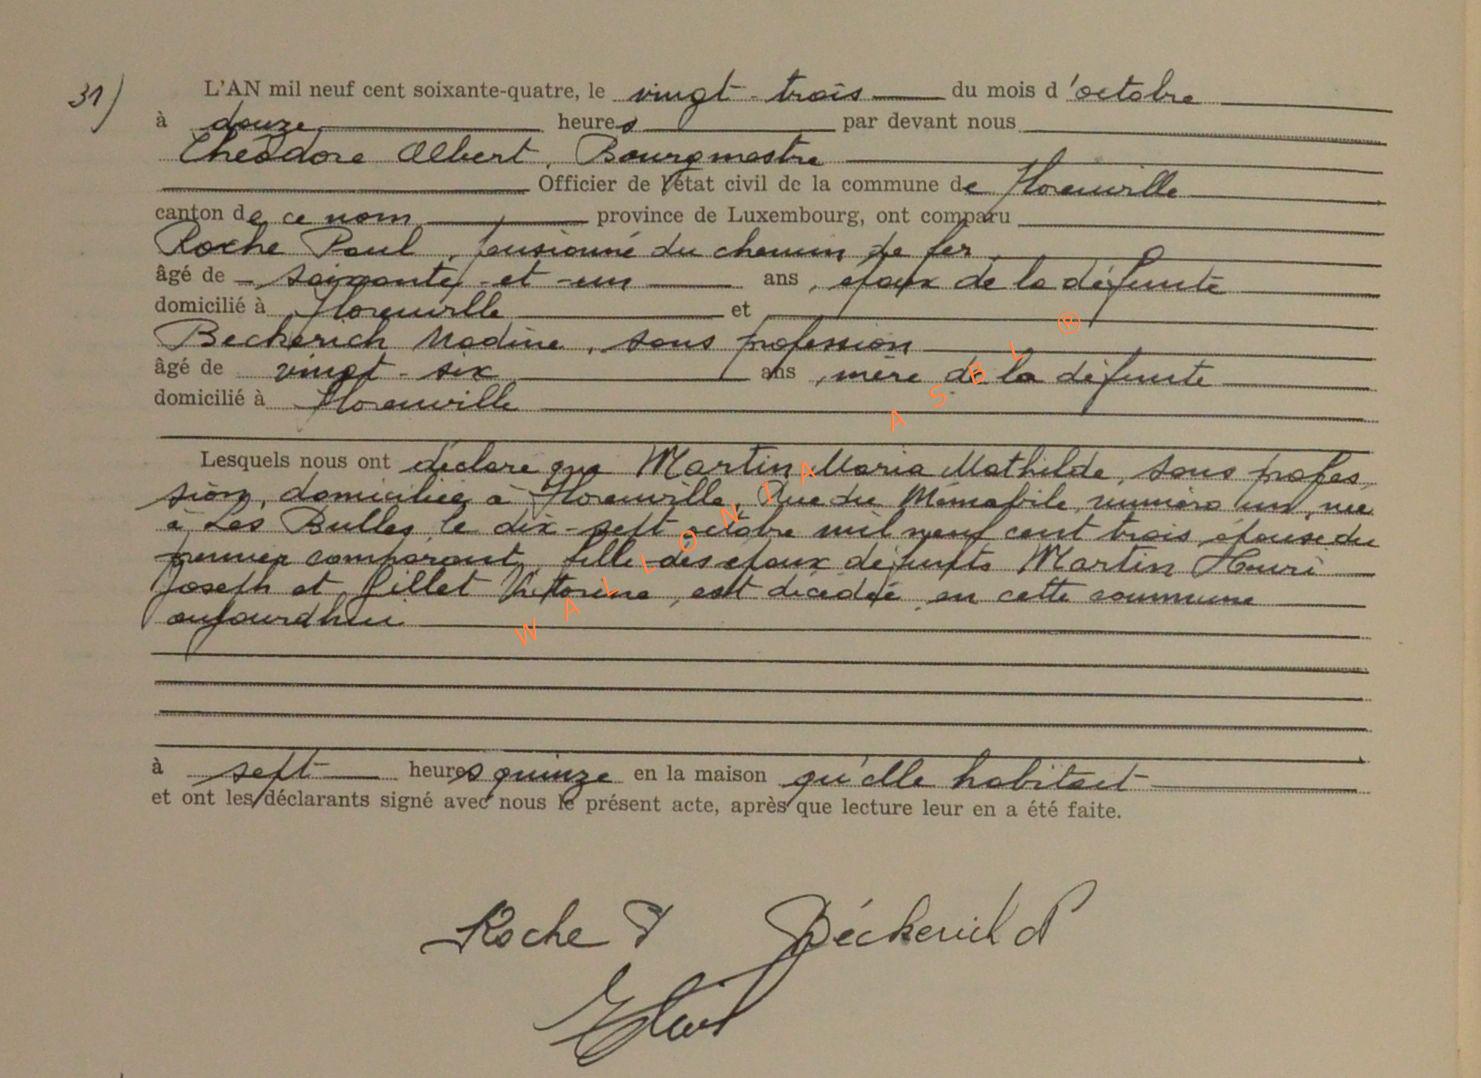 31)
L'AN mil neuf cent soixante-quatre, le vingt-trois du mois d'octobre
à douze heures par devant nous
Théodore Albert, Bourgmestre
Officier de l'état civil de la commune de Florenville
canton de ce nom province de Luxembourg, ont comparu
Roche Paul, pensionné du chemin de fer
âgé de soixante et un ans, époux de la défunte
domicilié à Florenville et
Beckerich Nadine, sans profession
âgé de vingt-six ans, mère de la défunte
domicilié à Florenville
Lesquels nous ont déclaré que Martin Maria Mathilde, sans profes
sion, domiciliée à Florenville, Rue du Mémabile, numéro un, née
à Les Bulles, le dix-sept octobre mil neuf cent trois, épouse du
premier comparant, fille des époux défunts Martin Henri
Joseph et Gillet Victorine, est décédée en cette commune
aujourdhui
à sept heures quinze en la maison qu'elle habitait
et ont les déclarants signé avec nous le présent acte, après que lecture leur en a été faite.
Roche P Béckerich
WALLONIA ASBL ®